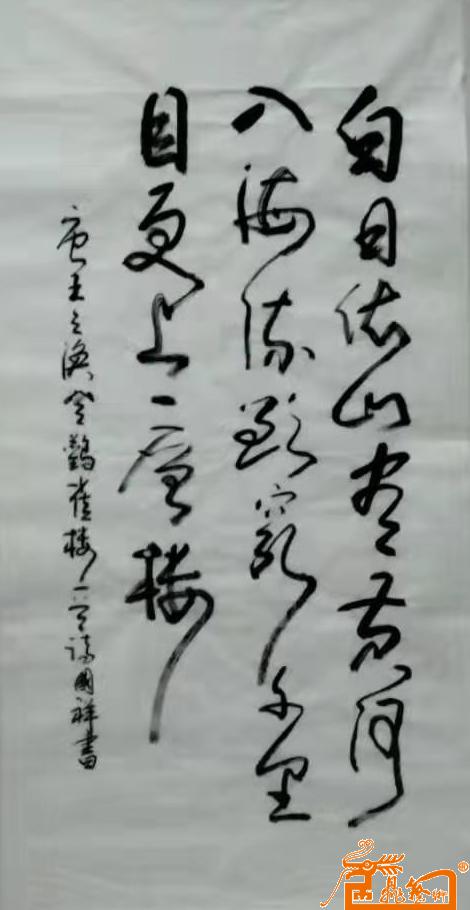 白日依山尽黄河
入海流欲穷千里
目更上一层楼
唐王之涣登鹳雀楼一首國祥書